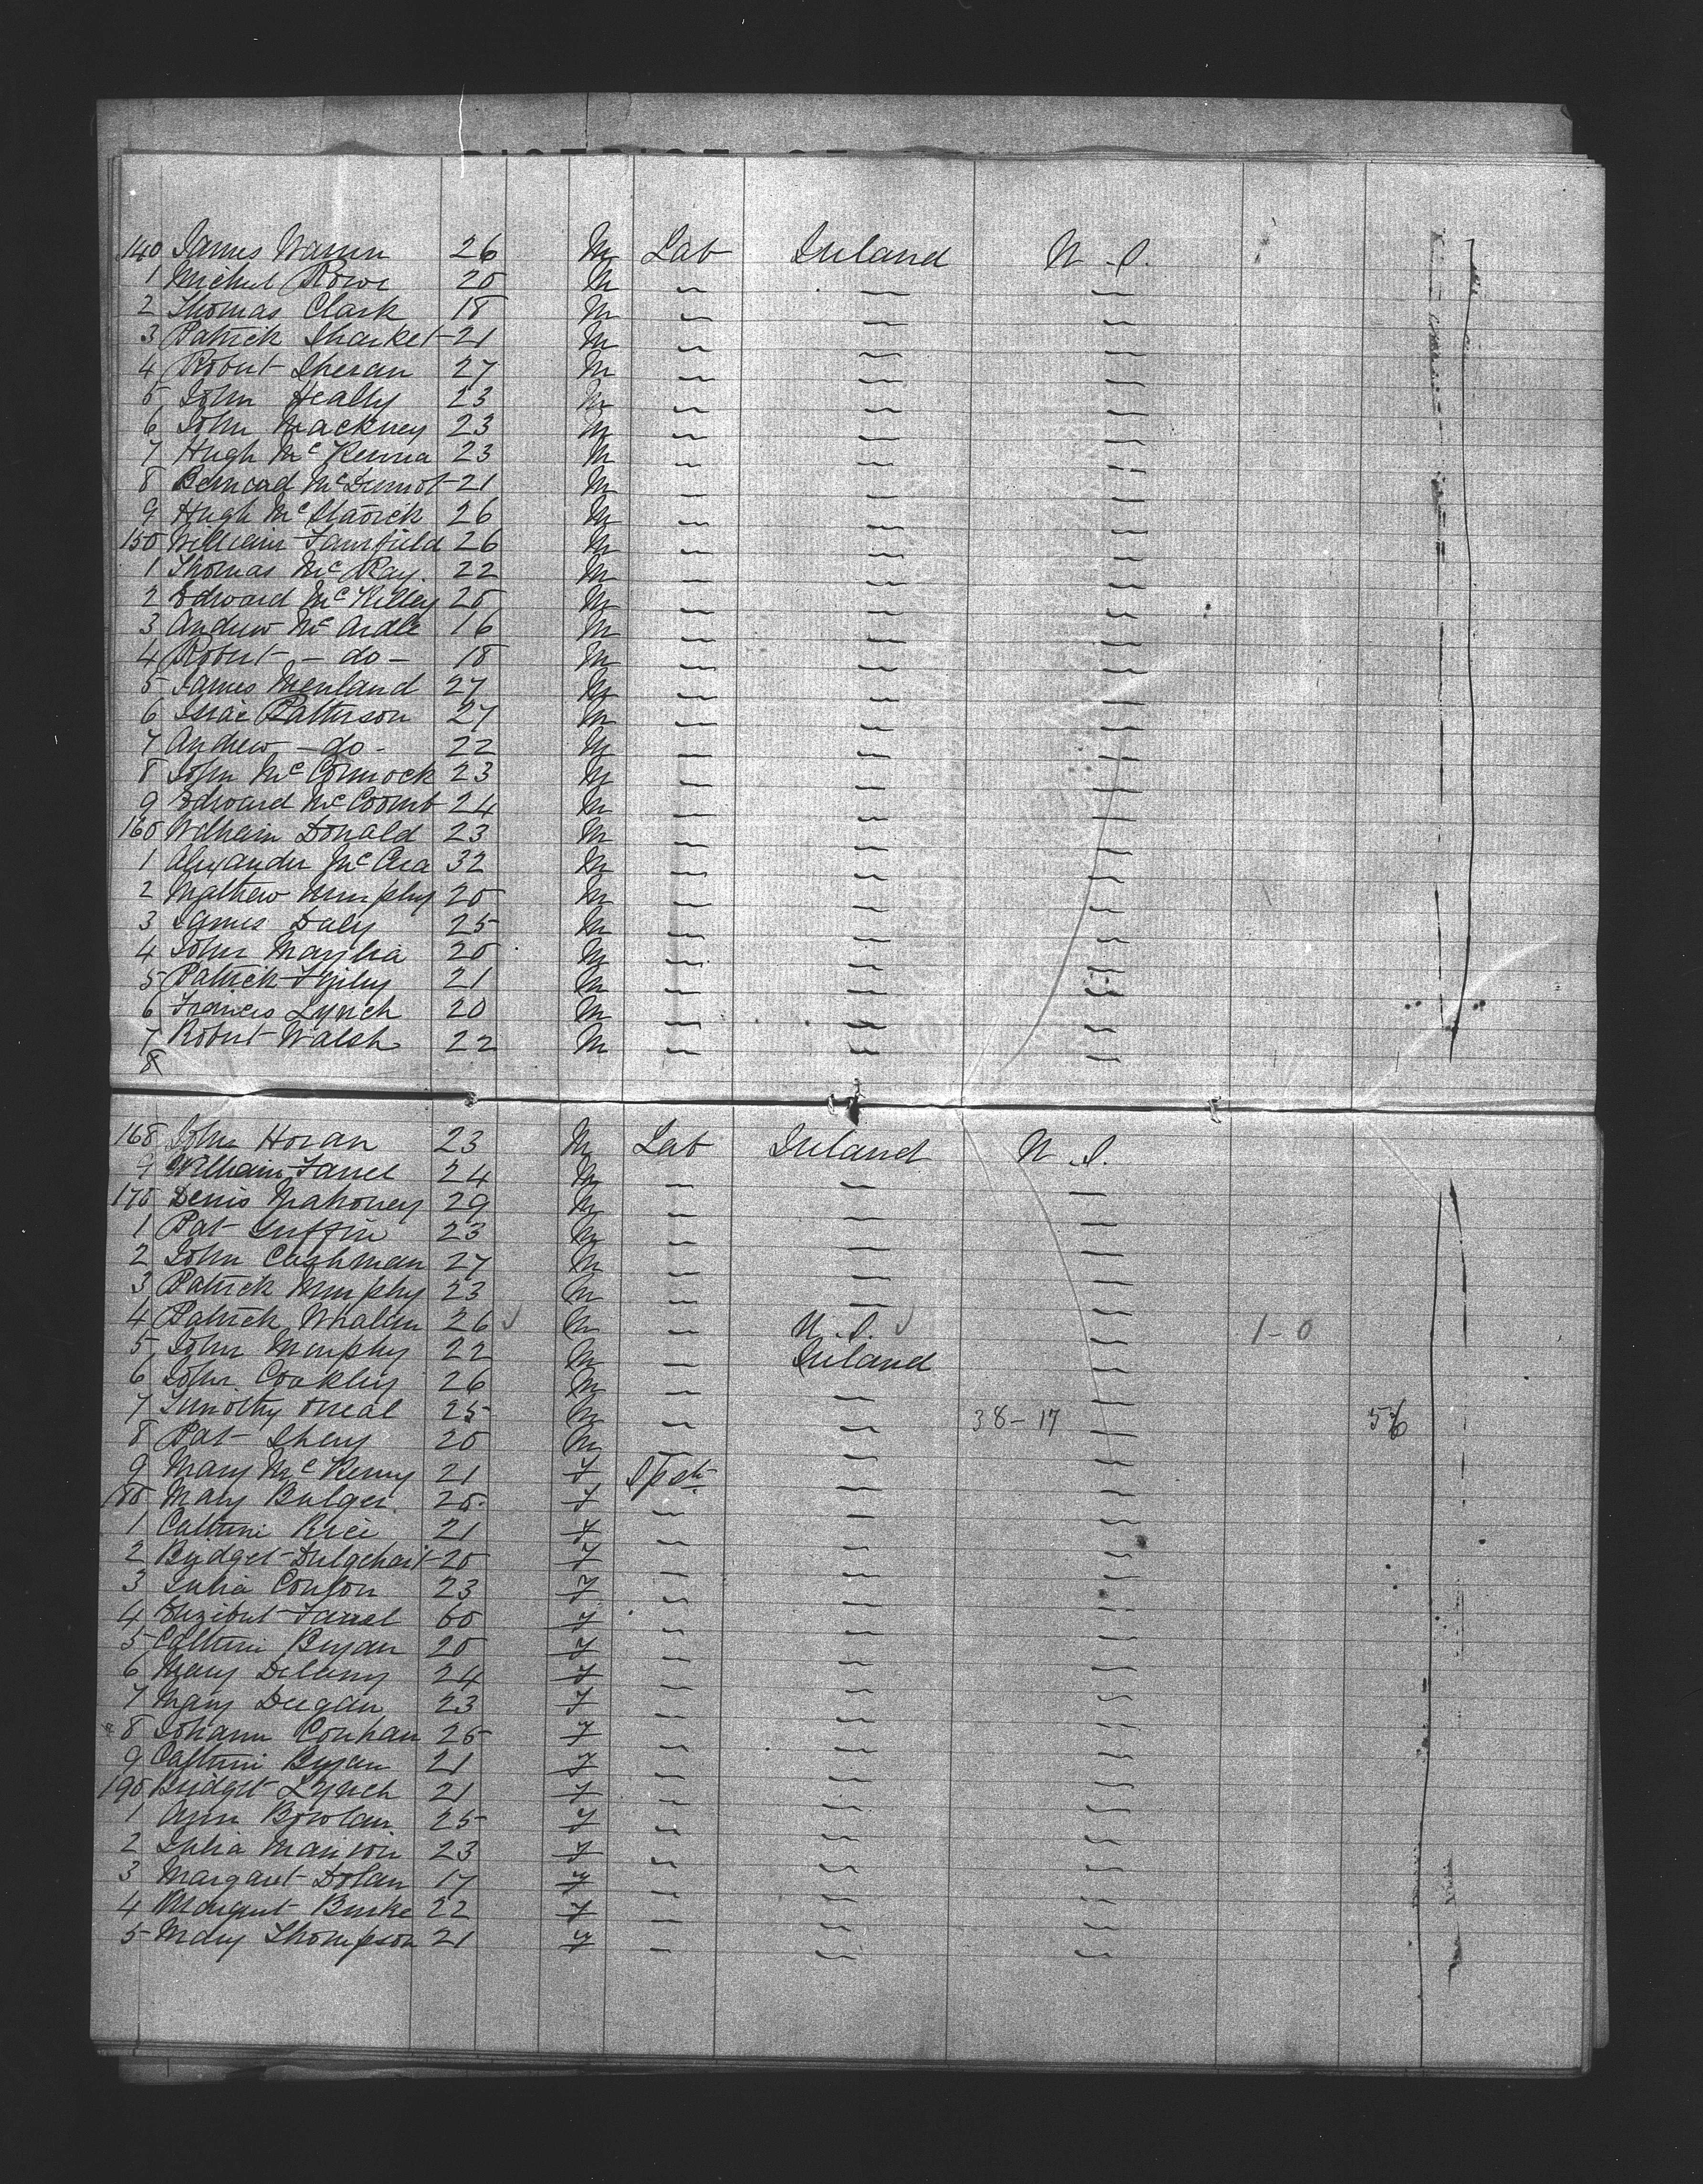 140 James Warren 26 M Lab Ireland U.S.
1 Michel Rowe 20 M " " "
2 Thomas Clark 18 M " " "
3 Patrick Sharket 21 M " " "
4 Robert Sheran 27 M " " "
5 John Healey 23 M " " "
6 John Mackney 23 M " " "
7 Hugh McKenna 23 M " " "
8 Bernard McDermot 21 M " " "
9 Hugh 26 M " " "
150 William Fairfield 26 M " " "
1 Thomas McKay 22 M " " "
2 Edward McKilley 20 M " " "
3 Andrew McArdle 16 M " " "
4 Robert - do - 18 M " " "
5 James Menland 27 M " " "
6 Isaic Patterson 27 M " " "
7 Andrew - do - 22 M " " "
8 John McCormock 23 M " " "
9 Edward McCoomb 24 M " " "
160 William Donald 23 M " " "
1 Alexander McCrea 32 M " " "
2 Mathew Murphy 20 M " " "
3 James Daly 25 M " " "
4 John 20 M " " "
5 Patrick 21 M " " "
6 Francis Lynch 20 M " " "
7 Robert Walsh 22 M " " "
8
168 John Horan 23 M Lab Ireland U.S.
9 William Farrel 24 M " " "
170 Denis Mahoney 29 M " " "
1 Pat Griffin 23 M " " "
2 John Cashman 27 M " " "
3 Patrick Murphy 23 M " " "
4 Patrick Whalen 26 M " U.S. " 1-0
5 John Murphy 22 M " Ireland "
6 John Coakley 26 M " " "
7 Timothy Oneal 25 M " " 38-17 " 56
8 Pat Shery 20 M " " "
9 Mary McKenny 21 F Spstr " "
180 Mary Bulger 20 F " " "
1 Cathrine Rice 21 F " " "
2 Bridget 20 F " " "
3 Julia Conlon 23 F " " "
4 Elizibet Farrel 60 F " " "
5 Cathrine Bryan 20 F " " "
6 Mary Delany 24 F " " "
7 Mary Deegan 23 F " " "
8 Johann 25 F " " "
9 Cathrine Bryan 21 F " " "
190 Bridget Lynch 21 F " " "
1 Ann Bowlan 25 F " " "
2 Julia 23 F " " "
3 Margaret Dolan 17 F " " "
4 Margaret Burke 22 F " " "
5 Mary Thompson 21 F " " "